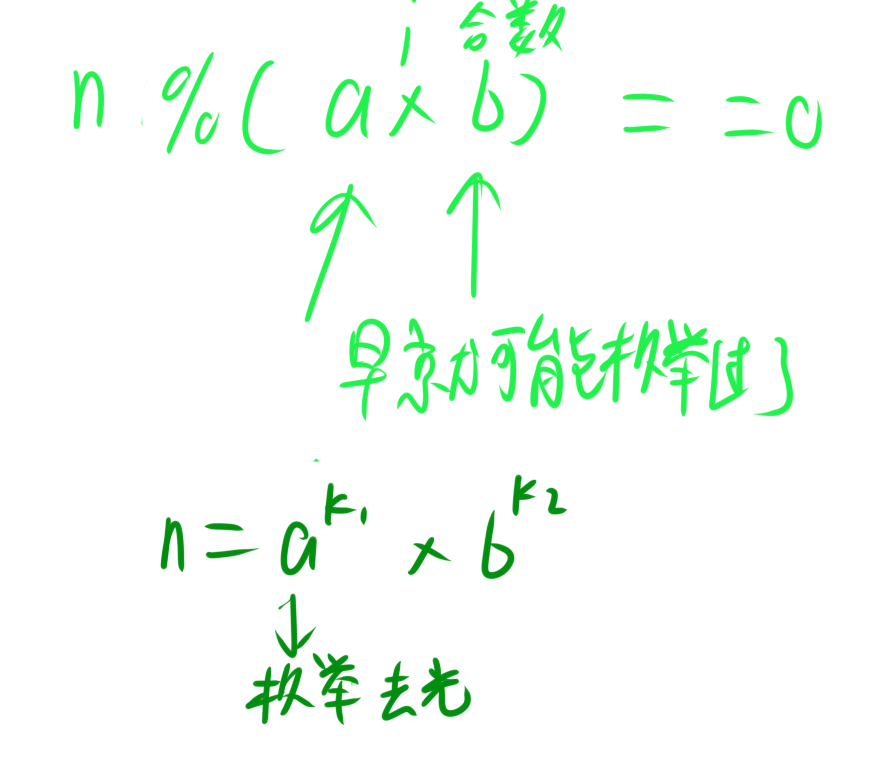 i 合数
n % ( a × b ) = = 0
早就可能枚举过了
n = a^k1 × b^k2
枚举去光